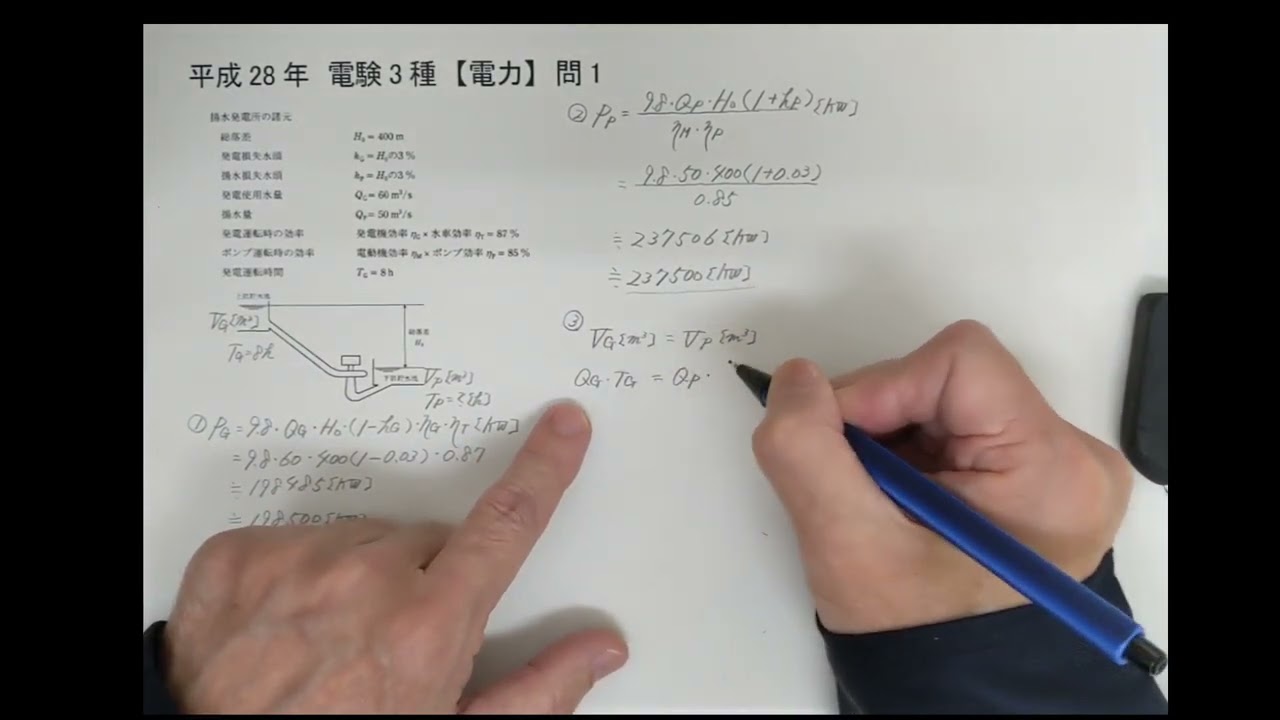 平成28年 電験3種【電力】問1
揚水発電所の諸元
総落差 H₀=400m
発電損失水頭 h_G=H₀の3%
揚水損失水頭 h_P=H₀の3%
発電使用水量 Q_G=60m³/s
揚水量 Q_P=50m³/s
発電運転時の効率 発電機効率 η_G×水車効率 η_T=87%
ポンプ運転時の効率 電動機効率 η_M×ポンプ効率 η_P=85%
発電運転時間 T_G=8h
上部貯水池
V_G[m³]
T_G=8h
総落差
H₀
下部貯水池
V_P[m³]
T_P=?[h]
① P_G=9.8・Q_G・H₀・(1-h_G)・η_G・η_T[kW]
=9.8・60・400(1-0.03)・0.87
≒198485[kW]
≒198500[kW]
② P_P=9.8・Q_P・H₀(1+h_P)/η_M・η_P[kW]
=9.8・50・400(1+0.03)/0.85
≒237506[kW]
≒237500[kW]
③ V_G[m³]=V_P[m³]
Q_G・T_G=Q_P・